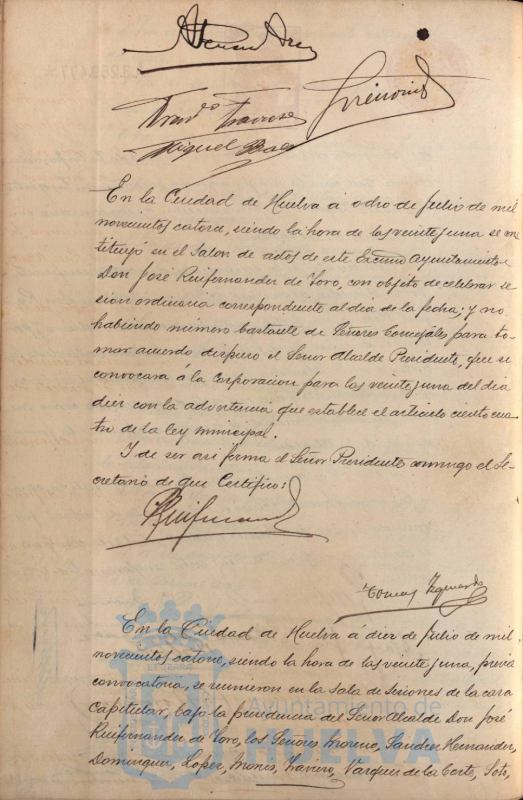 Miguel Baez
En la Ciudad de Huelva á ocho de Julio de mil
novecientos catorce, siendo la hora de las veinte y una se cons
tituyó en el Salon de actos de este Excmo Ayuntamiento
Don José Ruifernandez de Toro, con objeto de celebrar se
sion ordinaria correspondiente al dia de la fecha; y no
habiendo número bastante de Señores Concejales para to
mar acuerdo dispuso el Señor Alcalde Presidente, que se
convocara á la Corporacion para las veinte y una del dia
diez con la advertencia que establece el articulo ciento cua
tro de la ley municipal.
Y de ser asi firma el Señor Presidente conmigo el Se
cretario de que Certifico:
Ruifernandez
Tomas
En la Ciudad de Huelva á diez de Julio de mil
novecientos catorce, siendo la hora de las veinte y una, previa
convocatoria, se reunieron en la sala de sesiones de la casa
capitular, bajo la presidencia del Señor Alcalde Don José
Ruifernandez de Toro, los Señores Moreno, Sanchez Hernandez,
Dominguez, Lopez, Mones, Vazquez de la Corte, Soto,
Ayuntamiento de
HUELVA